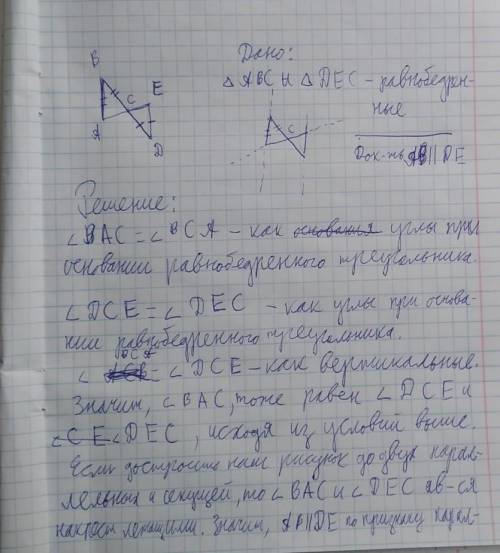 Дано:
B
△ ABC и △ DEC – равнобедрен-
ные
E
C
A
D
C
Док-ть AB || DE
Решение:
∠BAC = ∠BCA – как основания углы при
основании равнобедренного треугольника.
∠DCE = ∠DEC – как углы при основа-
нии равнобедренного треугольника.
∠BCA = ∠DCE – как вертикальные.
Значит, ∠BAC, тоже равен ∠DCE и
∠DEC, исходя из условий выше.
Если достроить наш рисунок до двух парал-
лельных и секущей, то ∠BAC и ∠DEC яв-ся
накрест лежащими. Значит, AB||DE по признаку парал-